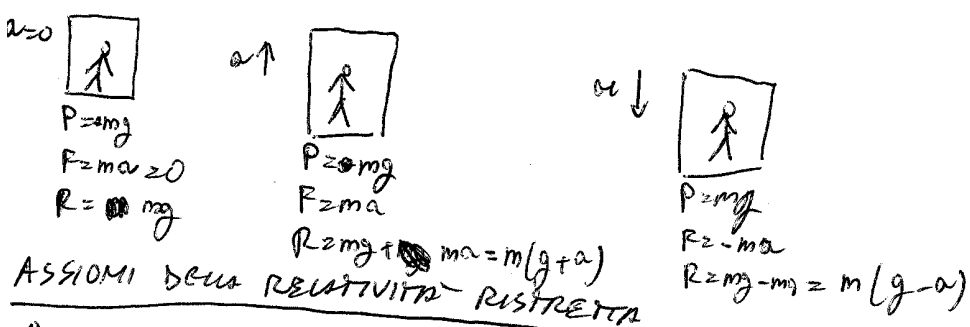 a=0
P=mg
F=ma=0
R= mg
a↑
P=mg
F=ma
R=mg+ ma=m(g+a)
a↓
P=mg
F=-ma
R=mg-ma = m(g-a)
ASSIOMI DELLA RELATIVITÀ RISTRETTA